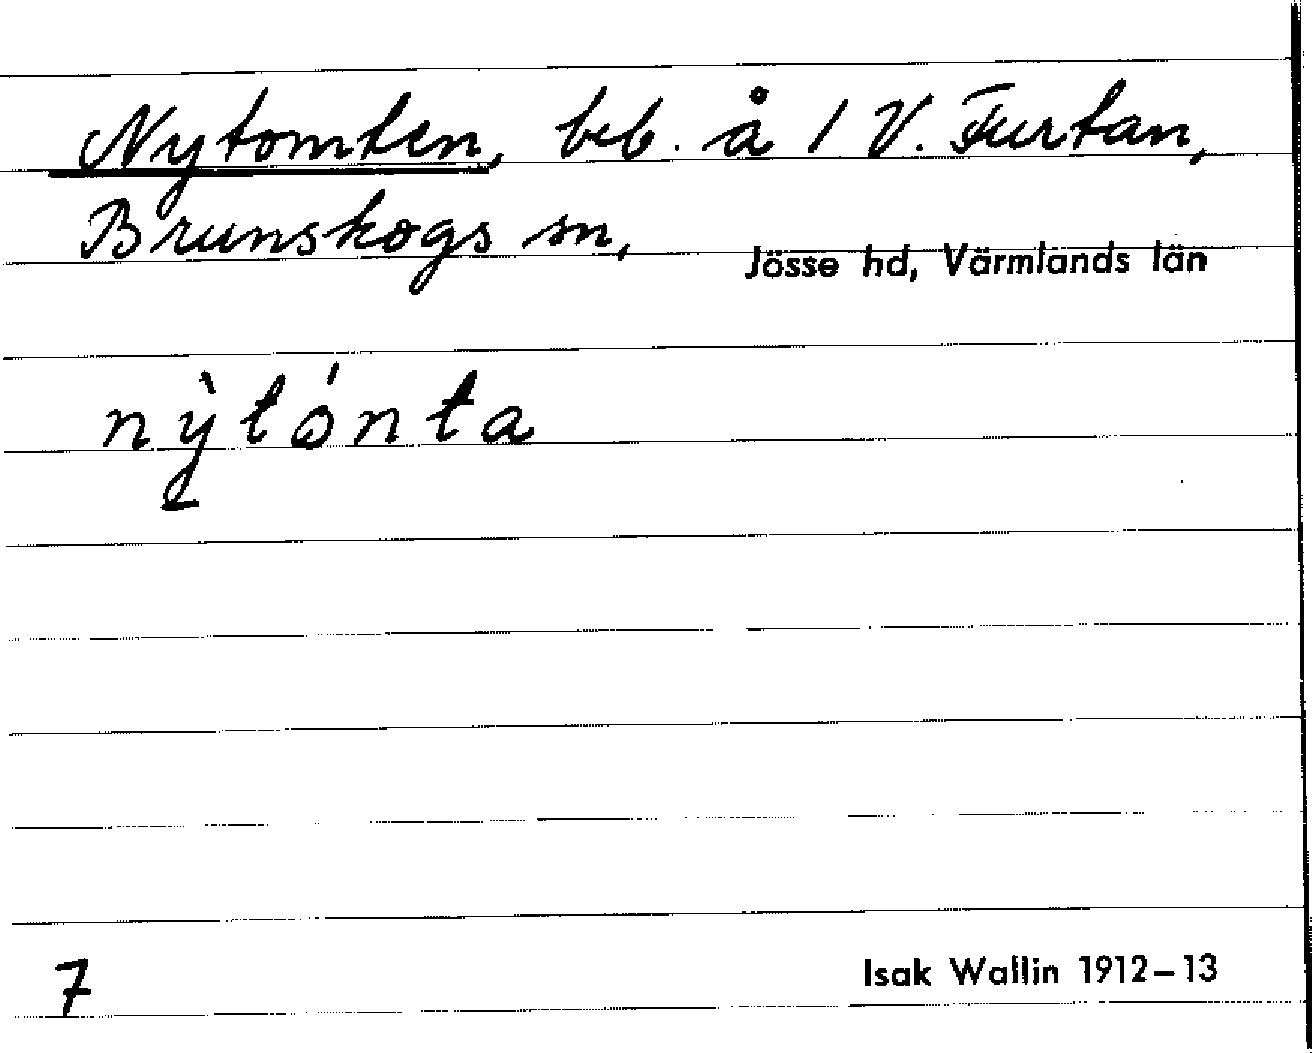 Nytomten, beb. å 1 V. Furtan,
Brunskogs sn, Jösse hd, Värmlands län
nỳtónta
7 Isak Wallin 1912–13